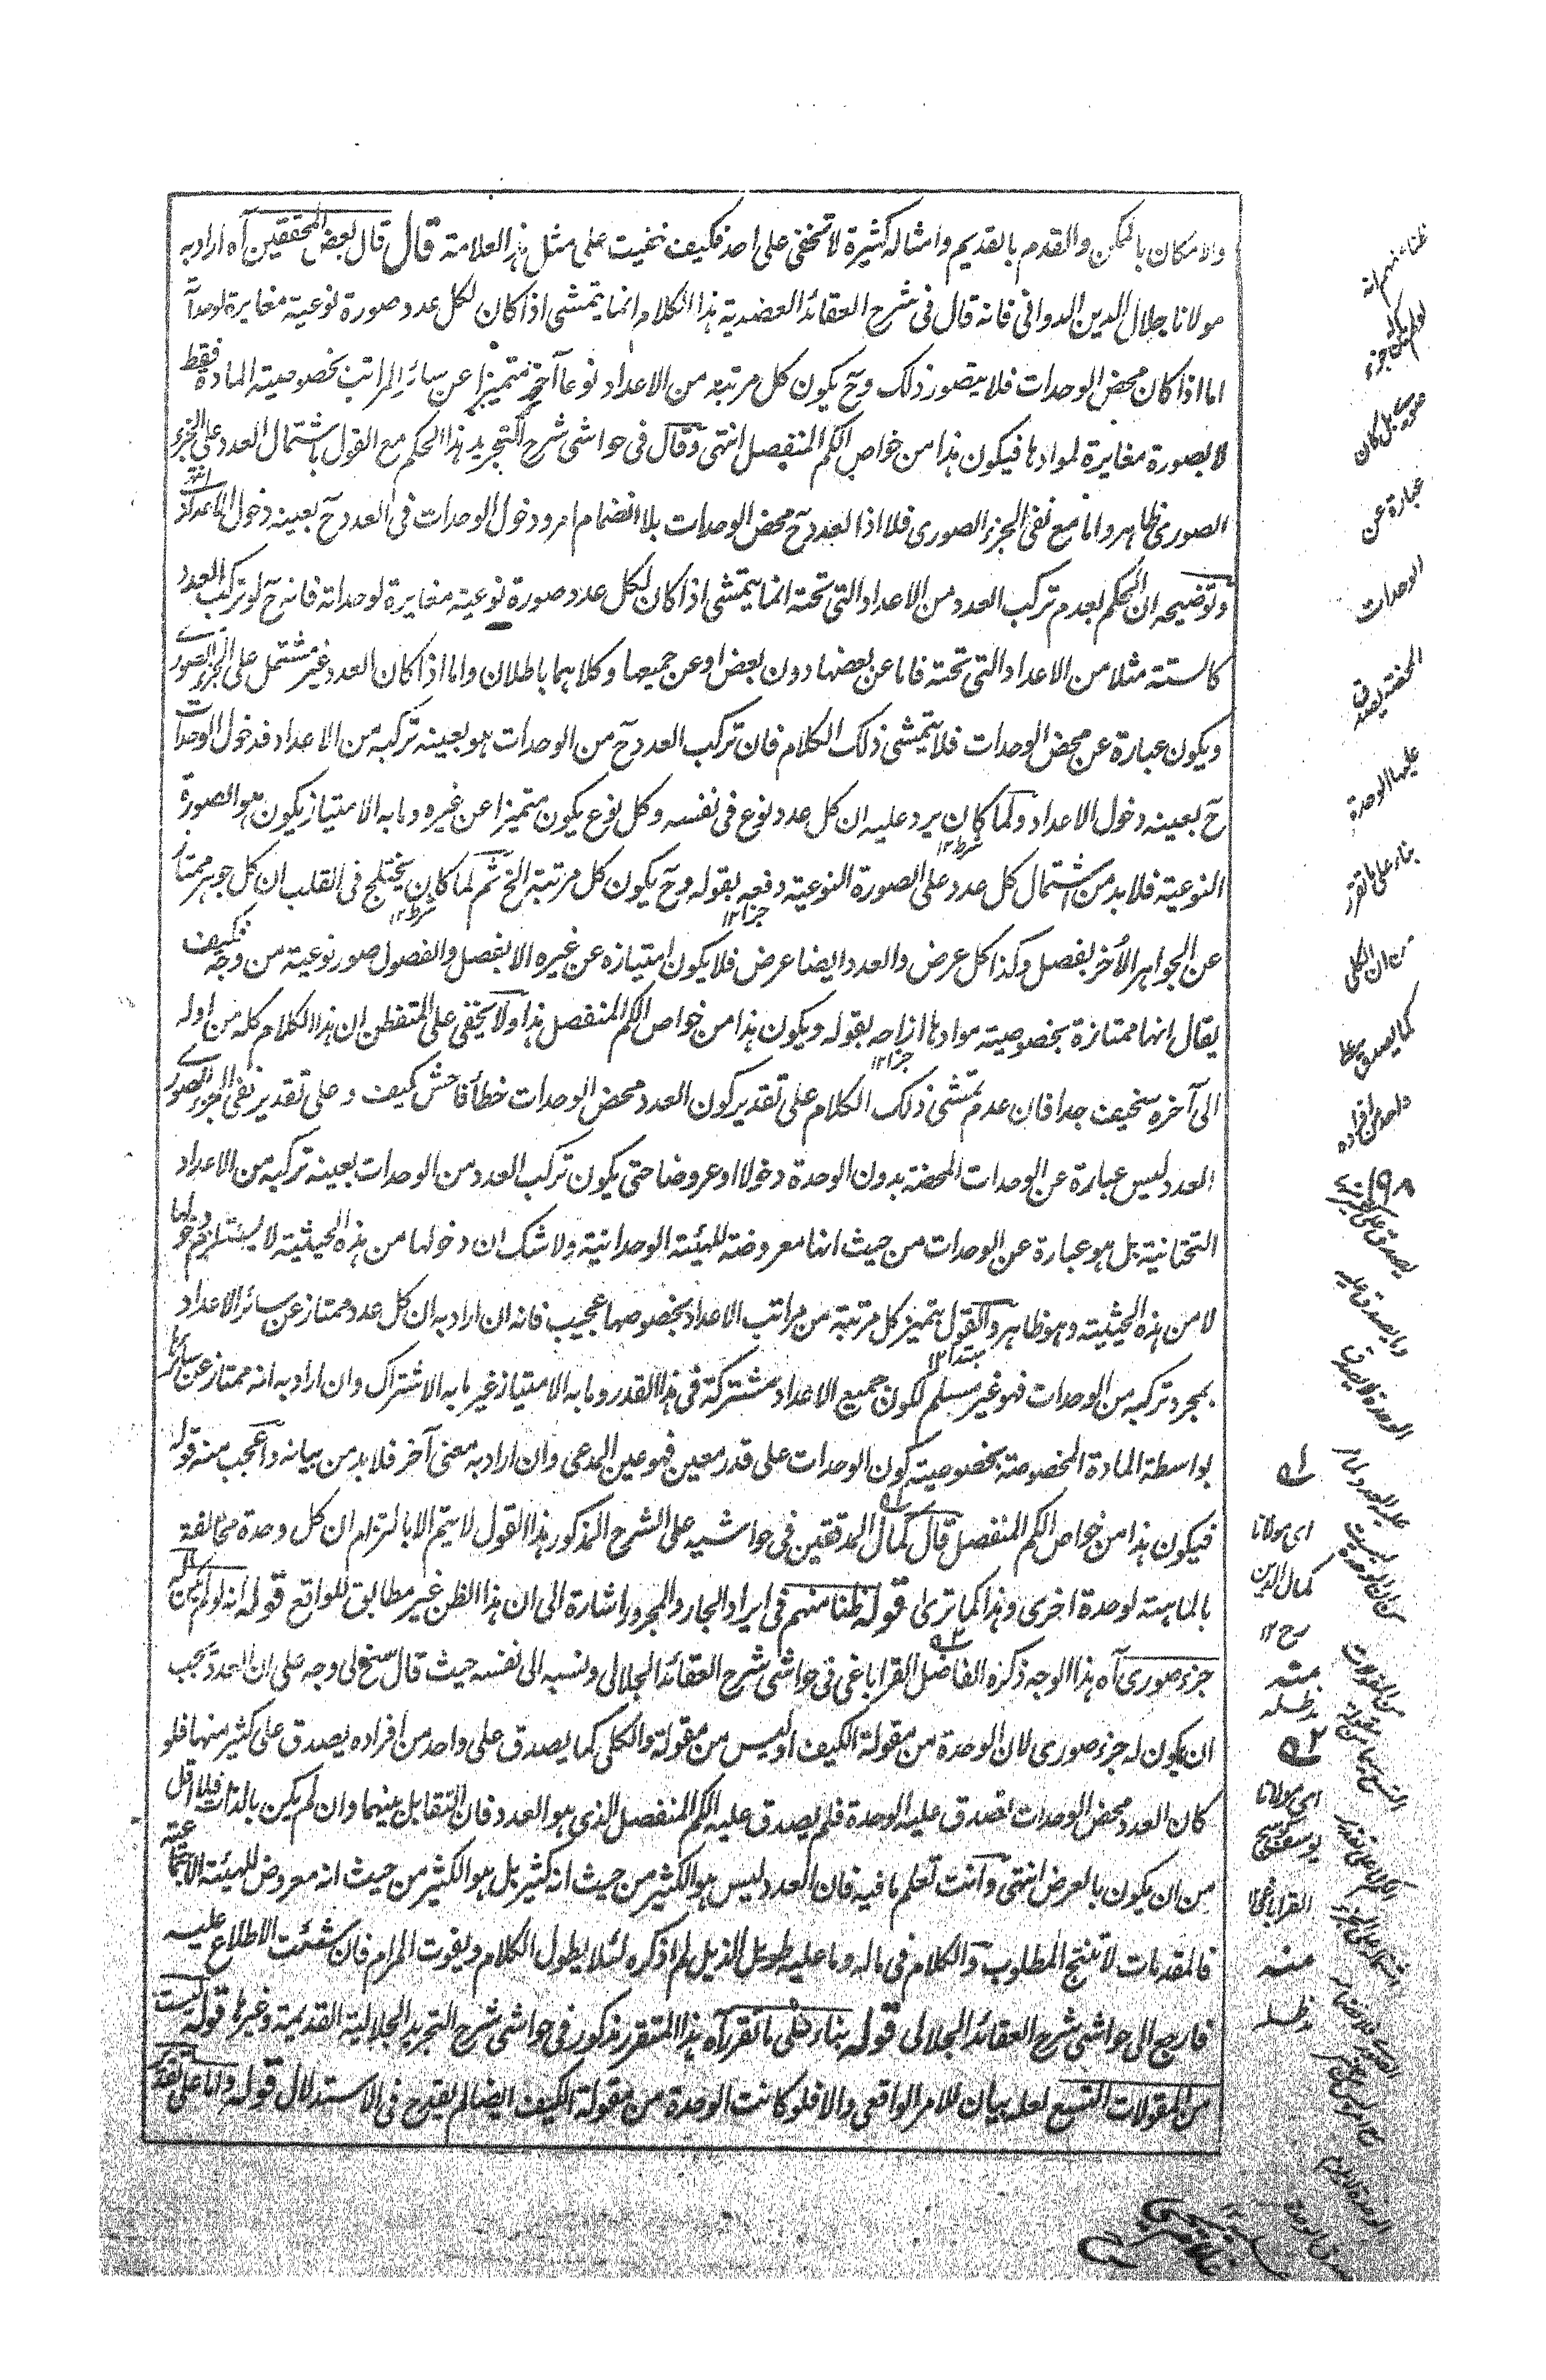 والامكان بالممكن والقدم بالقديم وامثاله كثيرة لا تخفى على احد فكيف خفيت على مثل هذا العلامة قال قال بعض المحققين آه اراد به
مولانا جلال الدين الدوانى فانه قال فى شرح العقائد العضدية هذا الكلام انما يتمشى اذا كان لكل عدد صورة نوعية مغايرة لوحداته
اما اذا كان محض الوحدات فلا يتصور ذلك وح يكون كل مرتبة من الاعداد نوعا آخر متميزا عن سائر المراتب بخصوصية المادة فقط
لا بصورة مغايرة لموادها فيكون هذا من خواص الكم المنفصل انتهى وقال فى حواشى شرح التجريد هذا الحكم مع القول باشتمال العدد على الجزء
الصورى ظاهر واما مع نفى الجزء الصورى فلا اذ العدد ح محض الوحدات بلا انضمام امر ودخول الوحدات فى العدد ح بعينه دخول الاعداد انتهى
وتوضيحه ان الحكم بعدم تركب العدد من الاعداد التى تحته انما يتمشى اذا كان لكل عدد صورة نوعية مغايرة لوحداته فانه ح لو تركب العدد
كالستة مثلا من الاعداد التى تحته فاما عن بعضها دون بعض او عن جميعها وكلاهما باطلان واما اذا كان العدد غير مشتمل على الجزء الصورى
ويكون عبارة عن محض الوحدات فلا يتمشى ذلك الكلام فان تركب العدد ح من الوحدات هو بعينه تركبه من الاعداد فدخول الوحدات
ح بعينه دخول الاعداد ولما كان يرد عليه ان كل عدد نوع فى نفسه وكل نوع يكون متميزا عن غيره وما به الامتياز يكون هو الصورة
شرط ١٢
النوعية فلا بد من اشتمال كل عدد على الصورة النوعية دفعه بقوله وح يكون كل مرتبة الخ ثم لما كان يختلج فى القلب ان كل جوهر ممتاز
جزا ١٢ شرط ١٢
عن الجواهر الأخر بفصل وكذا كل عرض والعدد ايضا عرض فلا يكون امتيازه عن غيره الا بفصل والفصول صور نوعية من وجه فكيف
يقال انها ممتازة بخصوصية موادها ازاحه بقوله ويكون هذا من خواص الكم المنفصل هذا ولا يخفى على المتفطن ان هذا الكلام كله من اوله
جزا ١٢
الى آخره سخيف جدا فان عدم تمشى ذلك الكلام على تقدير كون العدد محض الوحدات خطأ فاحش كيف وعلى تقدير نفى الجزء الصورى
العدد ليس عبارة عن الوحدات المحضة بدون الوحدة دخولا او عروضا حتى يكون تركب العدد من الوحدات بعينه تركبه من الاعداد
التحتانية بل هو عبارة عن الوحدات من حيث انها معروضة للهيئة الوحدانية ولا شك ان دخولها من هذه الحيثية لا يستلزم دخولها
لا من هذه الحيثية وهو ظاهر والقول بتميز كل مرتبة من مراتب الاعداد بخصوصها عجيب فانه ان اراد به ان كل عدد ممتاز عن سائر الاعداد
مبتدا ١٢
بمجرد تركبه من الوحدات فهو غير مسلم لكون جميع الاعداد مشتركة فى هذا القدر وما به الامتياز غير ما به الاشتراك وان اراد به انه ممتاز عن سائرها
بواسطة المادة المخصوصة بخصوصية كون الوحدات على قدر معين فهو عين المدعى وان اراد به معنى آخر فلا بد من بيانه واعجب منه قوله
فيكون هذا من خواص الكم المنفصل قال كمال المدققين فى حواشيه على الشرح المذكور هذا القول لا يتم الا بالتزام ان كل وحدة مخالفة
بالماهية لوحدة اخرى وهذا كما ترى قوله ظنا منهم فى ايراد الجار والمجرور اشارة الى ان هذا الظن غير مطابق للواقع قوله انه لو لم يكن
جزء صورى آه هذا الوجه ذكره الفاضل القراباغى فى حواشى شرح العقائد الجلالى ونسبه الى نفسه حيث قال سنح لى وجه على ان العدد يجب
ان يكون له جزء صورى لان الوحدة من مقولة الكيف او ليس من مقولة والكلى كما يصدق على واحد من افراده يصدق على كثير منها فلو
كان العدد محض الوحدات لصدق عليه الوحدة فلم يصدق عليه الكم المنفصل الذى هو العدد فان التقابل بينهما وان لم يكن بالذات فلا اقل
من ان يكون بالعرض انتهى وانت تعلم ما فيه فان العدد ليس هو الكثير من حيث انه كثير بل هو الكثير من حيث انه معروض للهيئة الاجتماعية
فالمقدمات لا تنتج المطلوب والكلام فى ما له وما عليه طويل الذيل لم اذكره لئلا يطول الكلام ويفوت المرام فان شئت الاطلاع عليه
فارجع الى حواشى شرح العقائد الجلالى قوله بناء على ما تقرر آه هذا المتقرر مذكور فى حواشى شرح التجريد الجلالية القديمة وغيرها قوله ليست
من المقولات التسع لعله بيان للامر الواقعى والا فلو كانت الوحدة من مقولة الكيف ايضا لم يقدح فى الاستدلال قوله واما على تقدير
ظنا منهم انه
لو لم يكن له جزء
صورى بل كان
عبارة عن
الوحدات
المحضة يصدق
عليها الوحدة
بناء على ما تقرر
من ان الكلى
كما يصدق على
واحد من افراده
يصدق على الكثير
وما يصدق عليه
الوحدة لا يصدق
عليه العدد
له ١
اى مولانا
كمال الدين
رح ١٢
منه
مدظله
له ٢
اى مولانا
يوسف كوسج
القراباغى
منه
مدظله